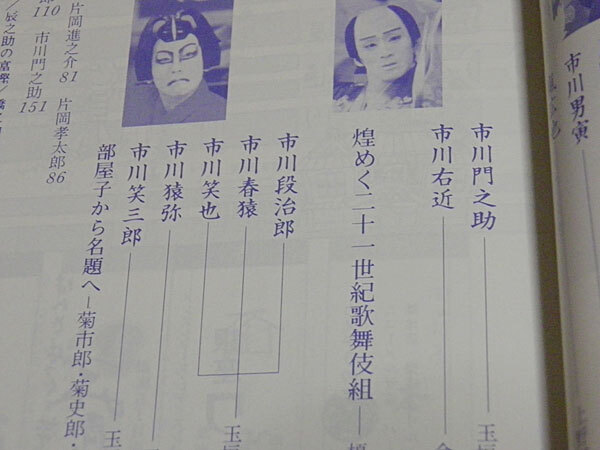 市川男寅
市川門之助
市川右近
煌めく二十一世紀歌舞伎組
市川段治郎
市川春猿
市川笑也
市川猿弥
市川笑三郎
部屋子から名題へ―菊市郎・菊史郎・
片岡進之介81 片岡孝太郎86
110 市川門之助151
辰之助の